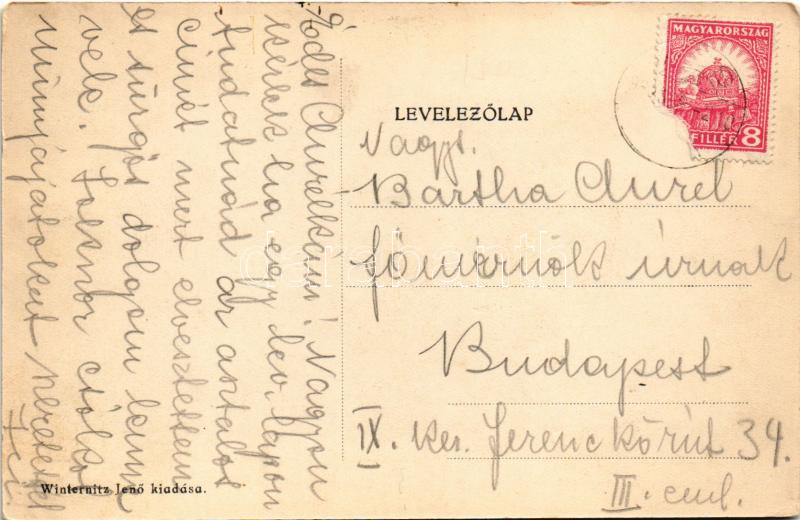 MAGYARORSZÁG
8
FILLÉR
LEVELEZŐLAP
Nagys.
Bartha Aurel
főmérnök úrnak
Budapest
IX. ker. Ferenc körút 34.
III. em.
Édes Aurelkám! Nagyon
kérlek ha egy lev. lapon
tudatnád az asztalos
címét mert elvesztettem
és sürgős dolgom lenne
vele. Sokszor csókol
mindnyájatokat szeretettel
Feri
Winternitz Jenő kiadása.
darabanth